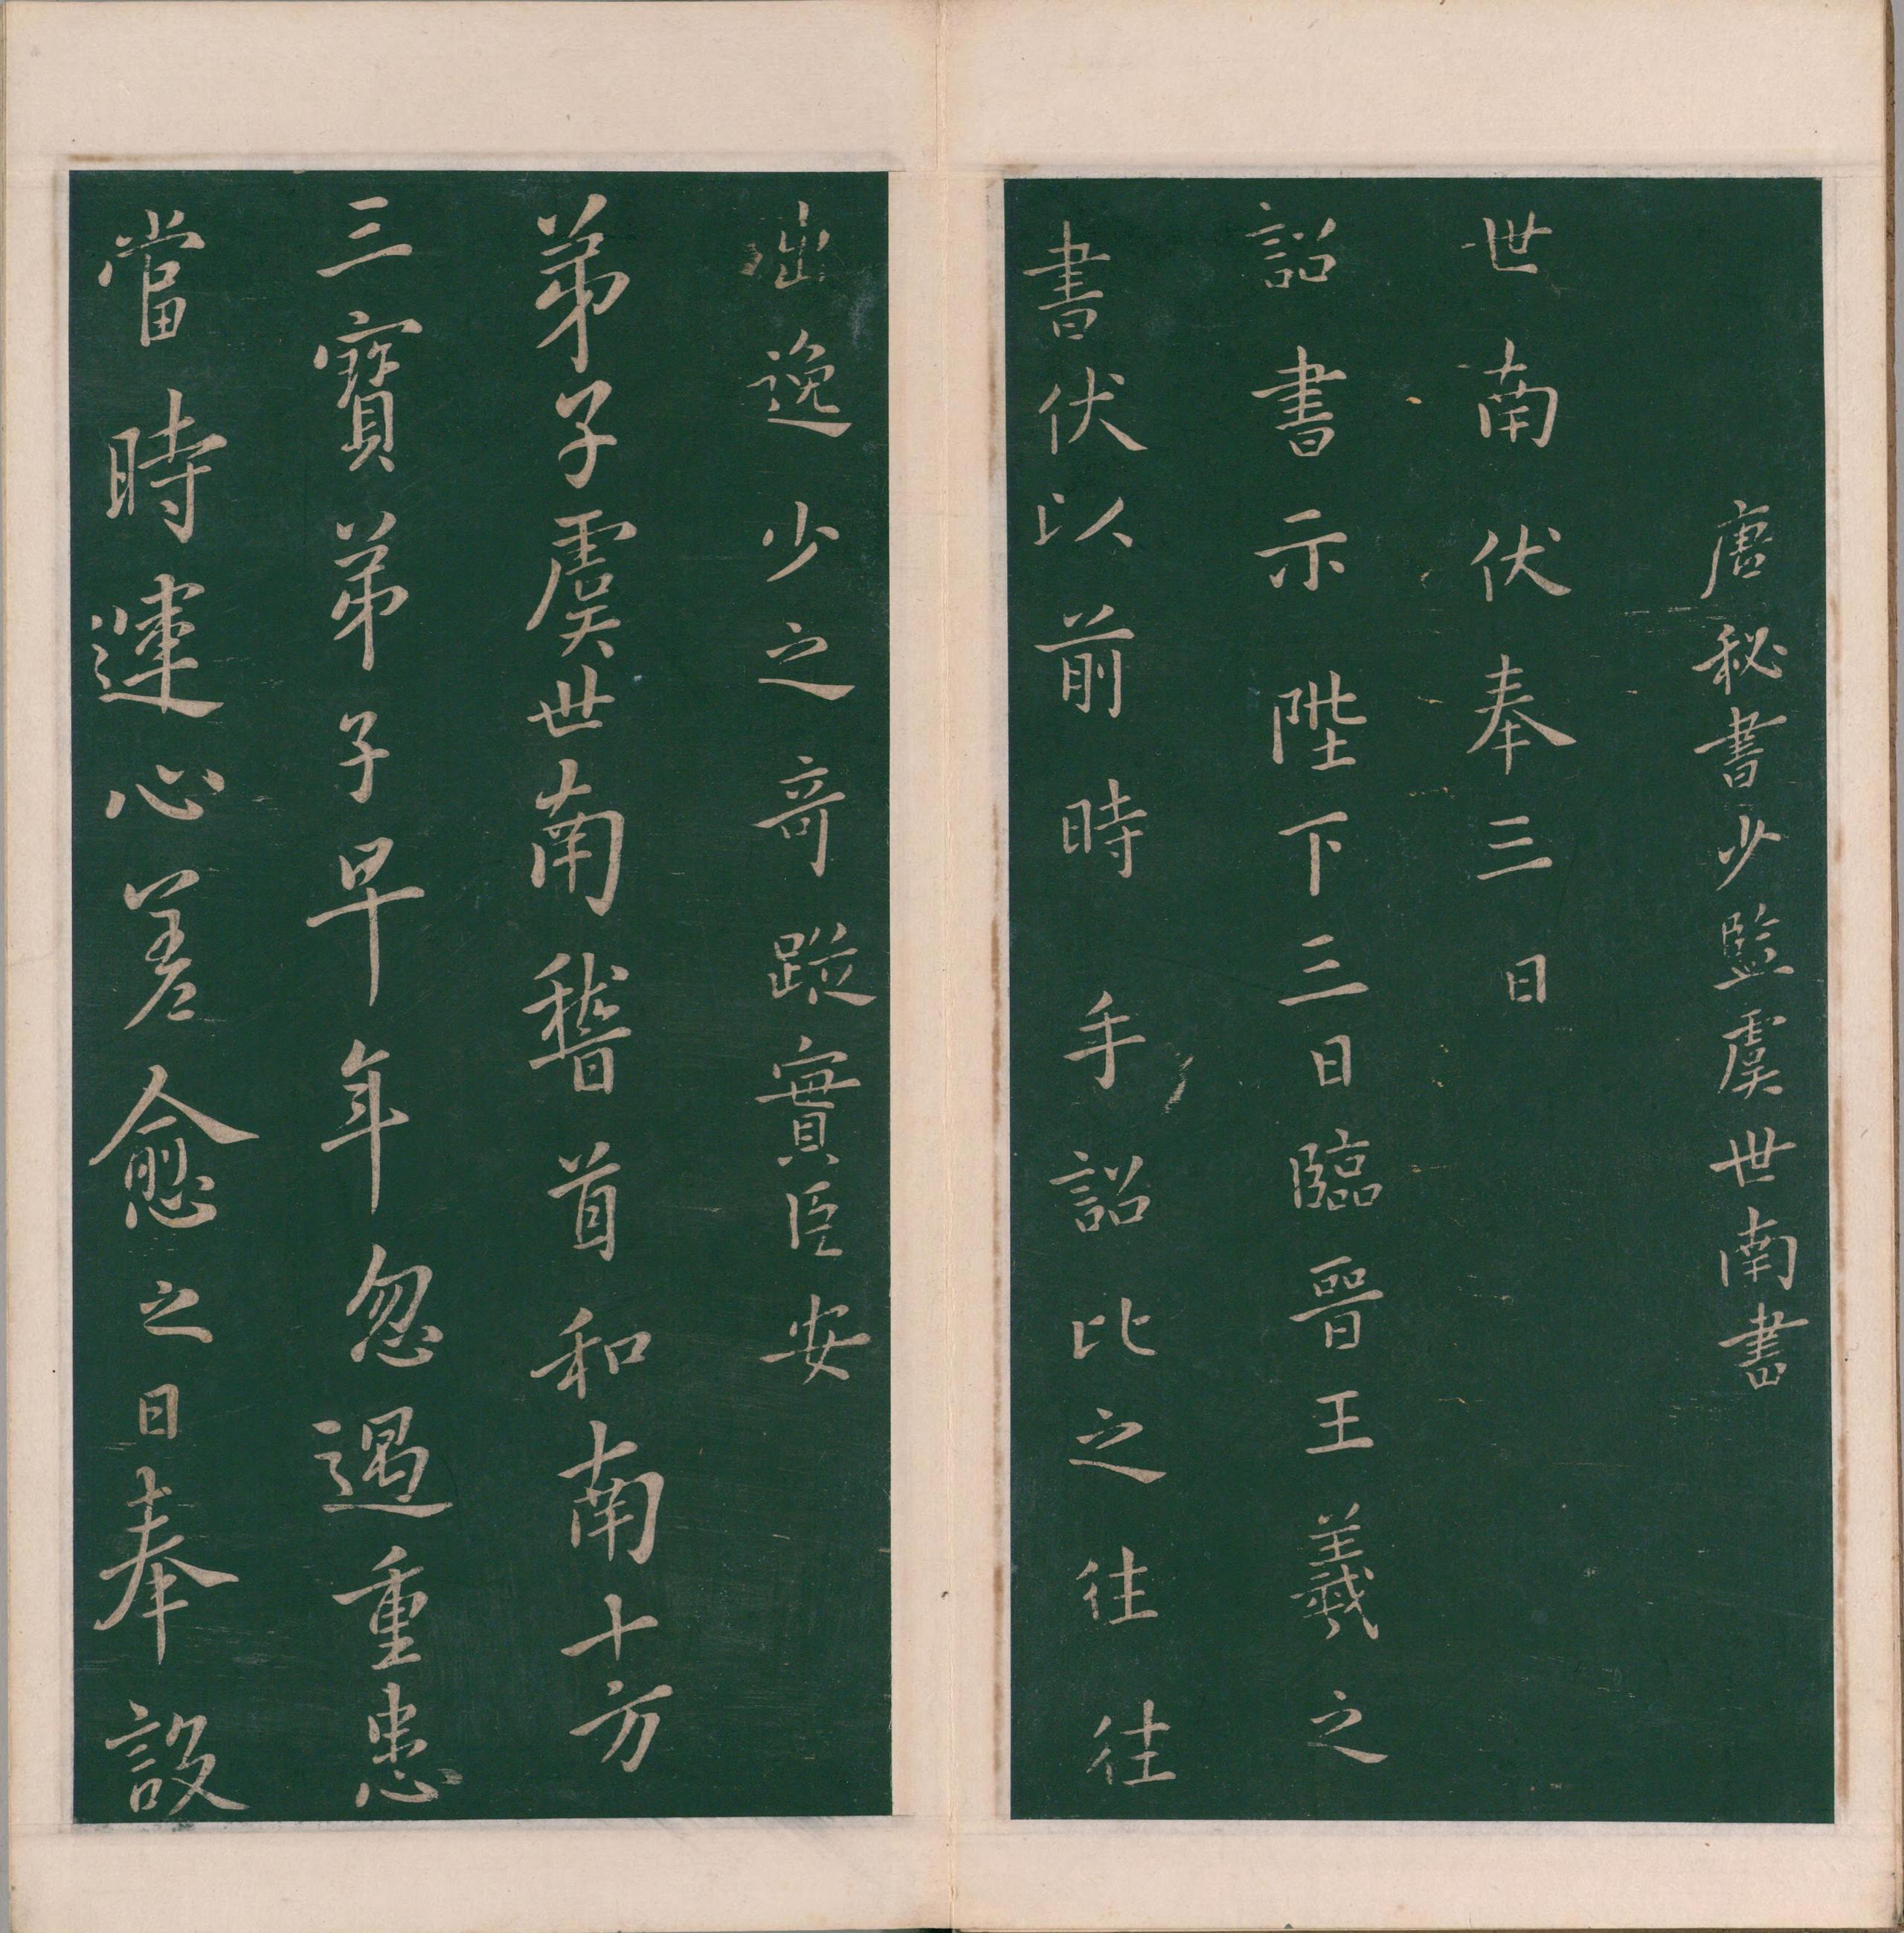 唐秘書少監虞世南書
世南伏奉三日
詔書示陛下三日臨晉王羲之
書伏以前時手詔比之往往
咄逸少之竒蹤實臣安
弟子虞世南稽首和南十方
三寶弟子早年忽遇重患
當時運心差愈之日奉設